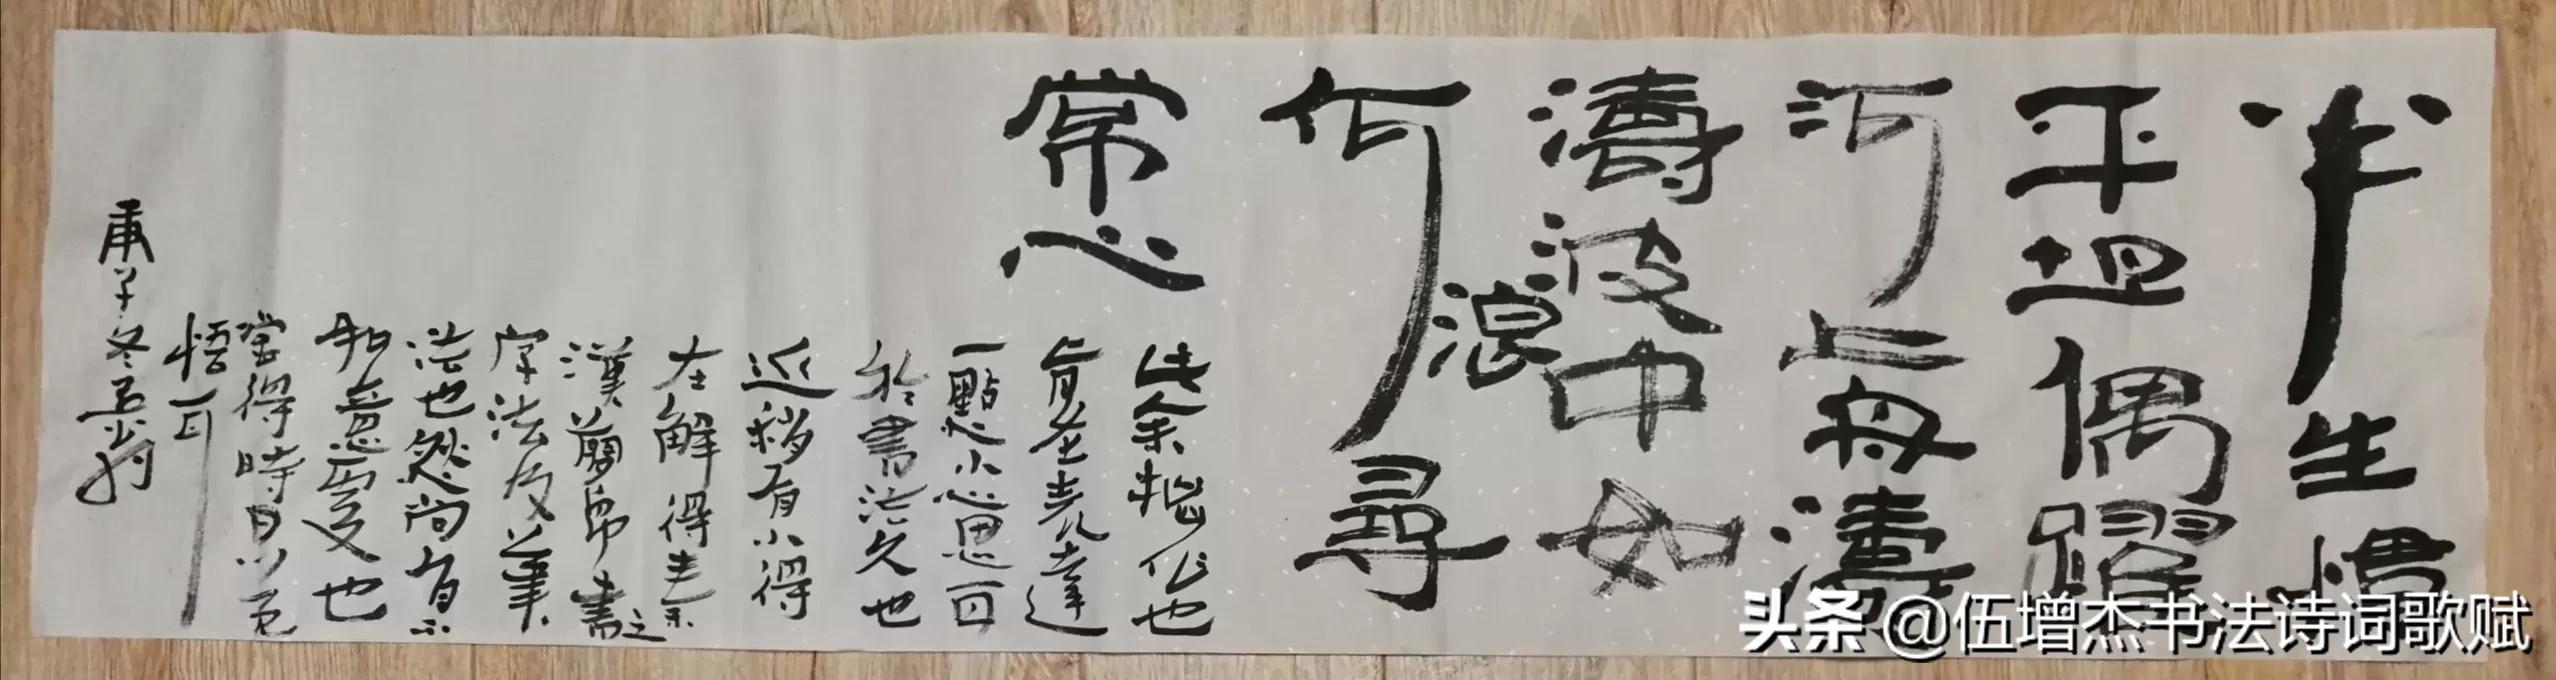 半生慣
平坦偶躍
河上舟濤
濤波中如
浪
何尋
常心
此余拙作也
旨在表達
一點小心思
於書法久也
近稍有小得
在解得秦
漢簡帛書之
字法及筆
法也然尚有不
如意處也
當得時日以
悟
庚子冬
头条 @伍增杰书法诗词歌赋